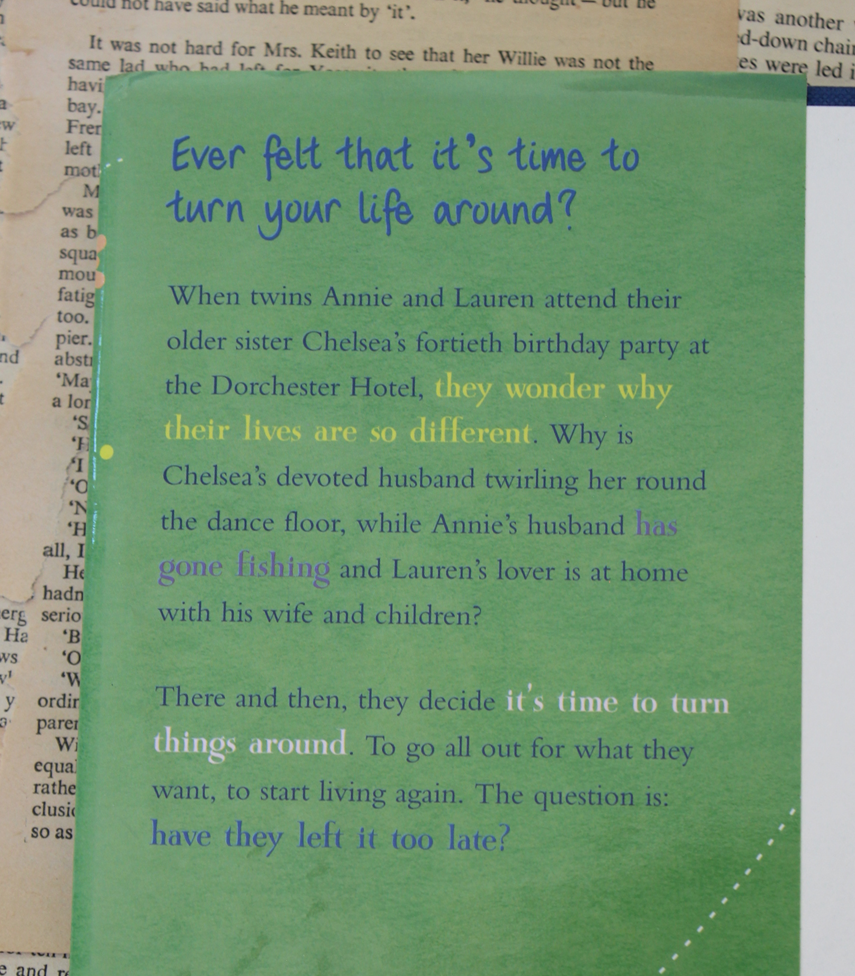 could not have said what he meant by 'it'.
It was not hard for Mrs. Keith to see that her Willie was not the
same lad who had left for
was another
d-down chair
es were led i
havi
bay.
Frer
left
mot
M
was
as b
squa
mou
fatig
too.
pier.
abstr
'Ma
a lor
'S
'H
'I
'O
'N
'H
all, I
He
hadn
serio
'B
'O
'W
ordir
parer
Wi
equa
rathe
clusic
so as
Ever felt that it's time to
turn your life around?
When twins Annie and Lauren attend their
older sister Chelsea's fortieth birthday party at
the Dorchester Hotel, they wonder why
their lives are so different. Why is
Chelsea's devoted husband twirling her round
the dance floor, while Annie's husband has
gone fishing and Lauren's lover is at home
with his wife and children?
There and then, they decide it's time to turn
things around. To go all out for what they
want, to start living again. The question is:
have they left it too late?